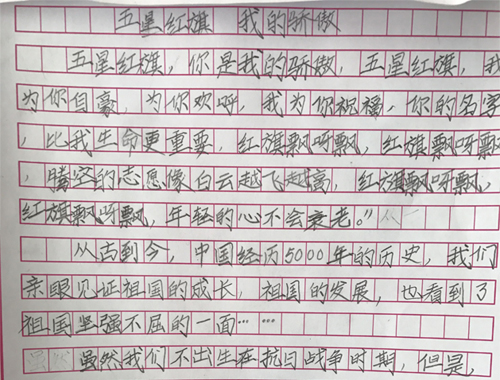 五星红旗 我的骄傲
五星红旗，你是我的骄傲，五星红旗，我
为你自豪，为你欢呼，我为你祝福，你的名字
，比我生命更重要，红旗飘呀飘，红旗飘呀飘
，腾空的志愿像白云越飞越高，红旗飘呀飘，
红旗飘呀飘，年轻的心不会衰老。”
从古到今，中国经历5000年的历史，我们
亲眼见证祖国的成长，祖国的发展，也看到了
祖国坚强不屈的一面……
虽然我们不出生在抗日战争时期，但是，